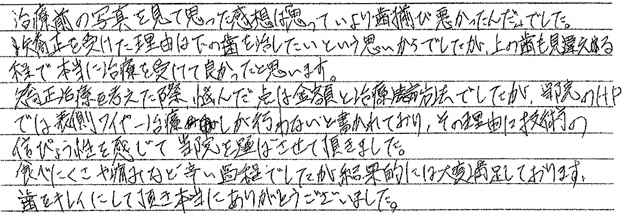 治療前の写真を見て思った感想は思っていより歯揃び悪かったんだなでした。
矯正を受けた理由は下の歯を治したいという思いからでしたが、上の歯も見違える
程で本当に治療を受けて良かったと思います。
矯正治療を考えた際、悩んだ点は金額と治療方法でしたが、当院のHP
では表側ワイヤー治療しか行わないと書かれており、その理由に技術の
信ぴょう性を感じて当院を選ばさせて頂きました。
食べにくさや痛みなど辛い過程でしたが結果的には大変満足しております。
歯をキレイにして頂き本当にありがとうございました。